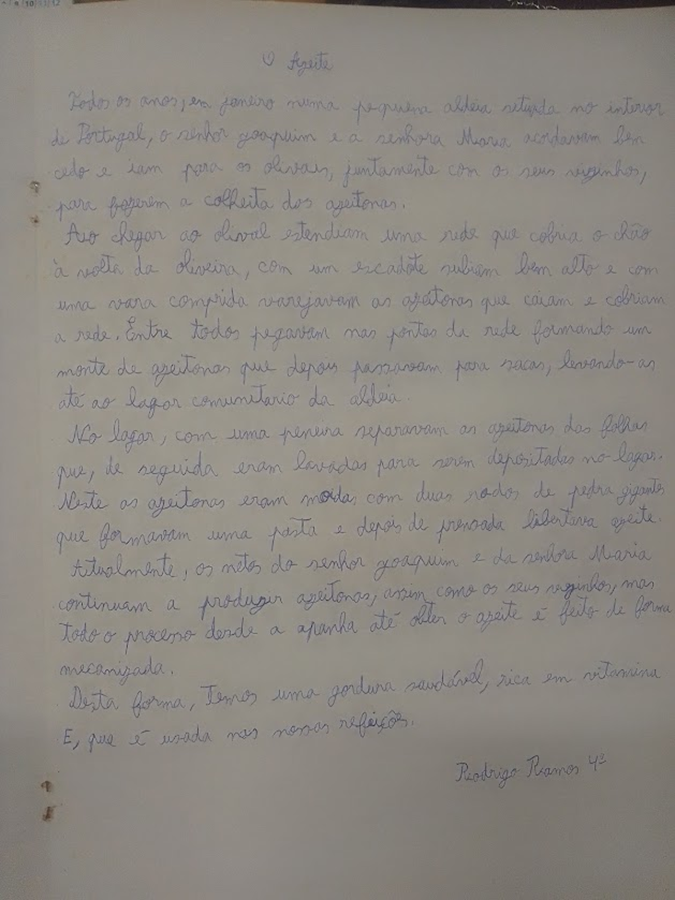 O Azeite
Todos os anos, em janeiro numa pequena aldeia situada no interior
de Portugal, o senhor Joaquim e a senhora Maria acordavam bem
cedo e iam para os olivais, juntamente com os seus vizinhos,
para fazerem a colheita das azeitonas.
Ao chegar ao olival estendiam uma rede que cobria o chão
à volta da oliveira, com um escadote subiam bem alto e com
uma vara comprida varejavam as azeitonas que caiam e cobriam
a rede. Entre todos pegavam nas pontas da rede formando um
monte de azeitonas que depois passavam para sacas, levando-as
até ao lagar comunitario da aldeia.
No lagar, com uma peneira separavam as azeitonas das folhas
que, de seguida eram lavadas para serem depositadas no lagar.
Neste as azeitonas eram moidas com duas rodas de pedra gigantes
que formavam uma pasta e depois de prensada libertava azeite.
Atualmente, os netos do senhor Joaquim e da senhora Maria
continuam a produzir azeitonas, assim como os seus vizinhos, mas
todo o processo desde a apanha até obter o azeite é feito de forma
mecanizada.
Desta forma, temos uma gordura saudável, rica em vitamina
E, que é usada nas nossas refeições.
Rodrigo Ramos 4º